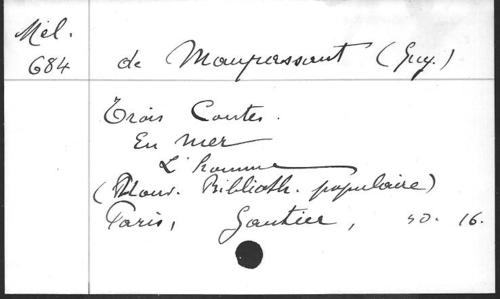 Mél.
684
de Maupassant (Guy.)
Trois Contes.
En mer
L'homme
(Nouv. Biblioth. populaire)
Paris, Gautier, 16.